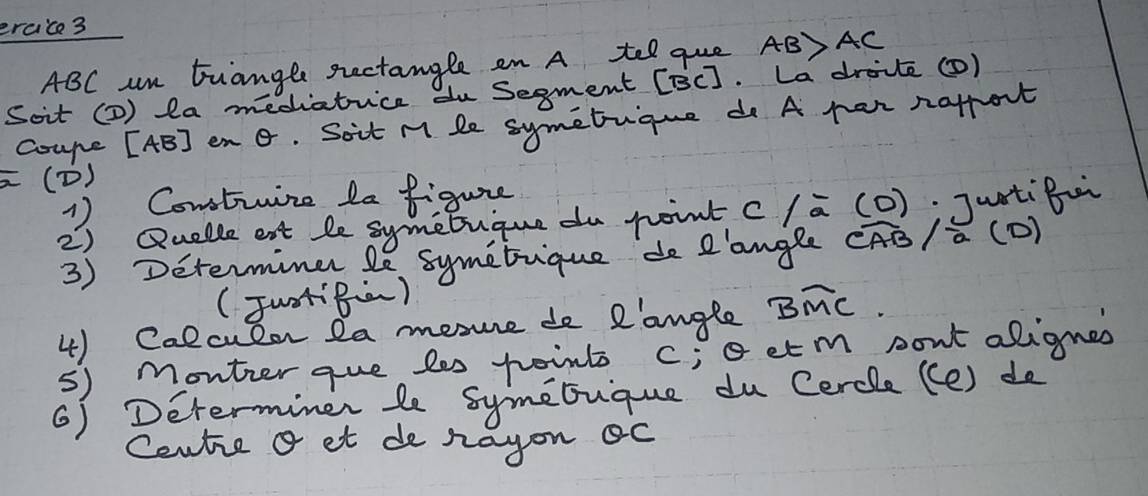 ercice 3
ABC un triangle rectangle en A tel que AB > AC
Soit (D) la médiatrice du Segment [BC]. La droite (D)
coupe [AB] en O. Soit M le symétrique de A par rapport
à (D)
1) Construire la figure
2) Quelle est le symétrique du point C / à (D). Justifier
3) Déterminer le symétrique de l'angle \widehat{CAB} / à (D)
(Justifier)
4) Calculer la mesure de l'angle \widehat{BMC}.
5) Montrer que les points C; O et M sont alignés
6) Déterminer le symétrique du Cercle (C) de
Centre O et de rayon OC